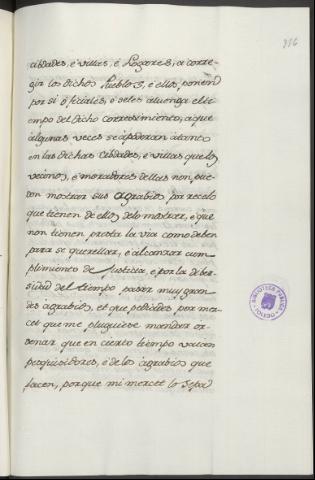 316
cibdades, é villas, é Logares, a corre-
gir los dichos Pueblos, é ellos, poniend
por si oficiales, é deles aluenga el ti-
empo del dicho corregimiento, a que
algunas veces se apoderan a tanto
en las dichas Cibdades, é villas que los
vecinos, é moradores dellas non pue-
den mostrar sus agrabios por recelo
que tienen de ellos delo mostrar, é que
non tienen presta la via como deben
para se querellar, é alcanzar cum-
plimiento de Justicia, é por la diber-
sidad del tiempo pasar muy gran-
des agrabios, et que pediades por mer-
cet que me pluguiese mandar or-
denar que en cierto tiempo vaian
perquisidores, é de los agrabios que
facen, porque mi mercet lo sepa
BIBLIOTECA PUBLICA
TOLEDO